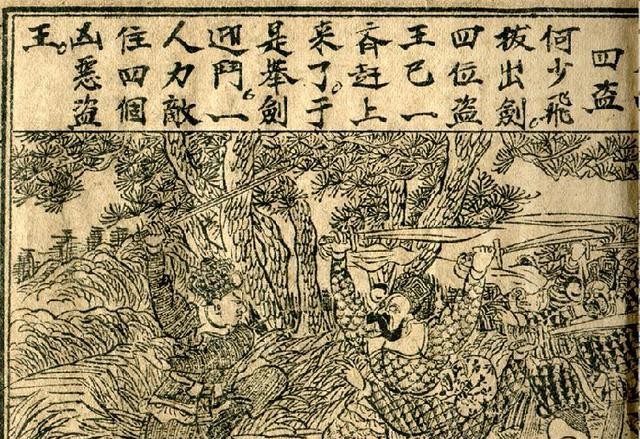 四盗
何少飛
拔出劍。
四位盗
王已一
斉赶上
来了。于
是举劍
迎鬥。一
人力敵
住四個
凶惡盗
王。